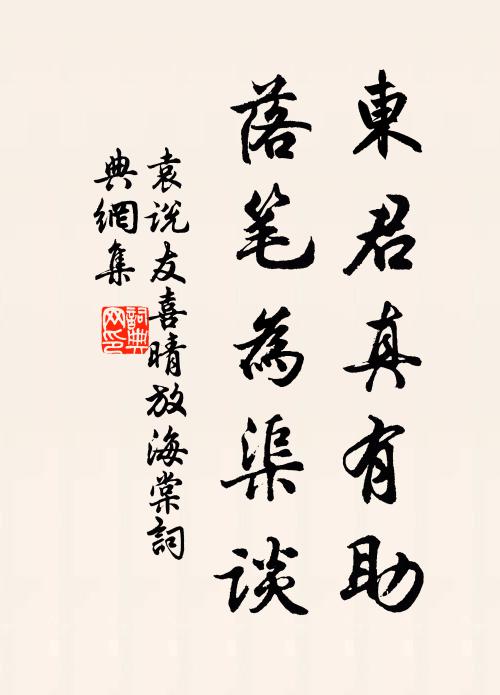 東君真有助
落笔為渠談
袁説友喜晴放海棠詞
典網集
詞典
网印